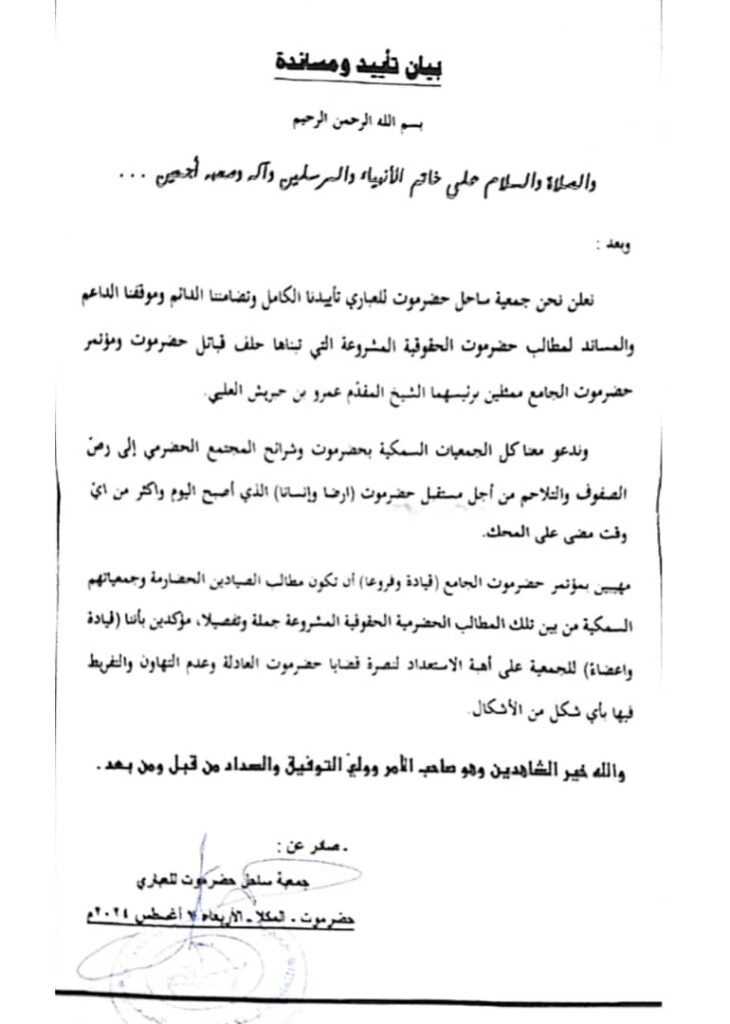 بيان تأييد ومساندة
بسم الله الرحمن الرحيم
والصلاة والسلام على خاتم الأنبياء والمرسلين وآله وصحبه أجمعين ...
وبعد :
نعلن نحن جمعية ساحل حضرموت للعباري تأييدنا الكامل وتضامننا الدائم وموقفنا الداعم
والمساند لمطالب حضرموت الحقوقية المشروعة التي تبناها حلف قبائل حضرموت ومؤتمر
حضرموت الجامع ممثلين برئيسهما الشيخ المقدّم عمرو بن حبريش العليي.
وندعو معنا كل الجمعيات السمكية بحضرموت وشرائح المجتمع الحضرمي إلى رصّ
الصفوف والتلاحم من أجل مستقبل حضرموت (ارضا وإنسانا) الذي أصبح اليوم واكثر من ايّ
وقت مضى على المحك.
مهيبين بمؤتمر حضرموت الجامع (قيادة وفروعا) أن تكون مطالب الصيادين الحضارمة وجمعياتهم
السمكية من بين تلك المطالب الحضرمية الحقوقية المشروعة جملة وتفصيلا، مؤكدين بأننا (قيادة
واعضاة) للجمعية على أهبة الاستعداد لنصرة قضايا حضرموت العادلة وعدم التهاون والتفريط
فيها بأي شكل من الأشكال.
والله خير الشاهدين وهو صاحب الأمر ووليّ التوفيق والسداد من قبل ومن بعد .
. صادر عن :
جمعية ساحل حضرموت للعباري
حضرموت - المكلا - الأربعاء ٧ أغسطس ٢٠٢٤م